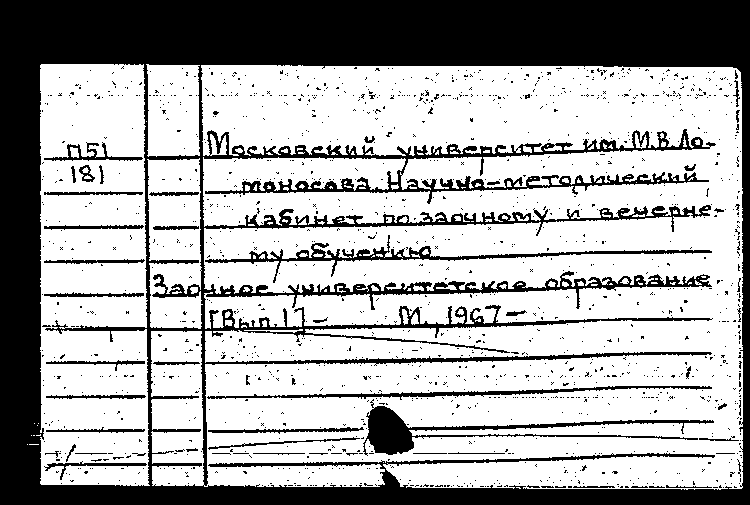 П51
181
Московский университет им. М.В. Ло-
моносова. Научно-методический
кабинет по заочному и вечерне-
му обучению
Заочное университетское образование.
[Вып. 1] – М., 1967 –